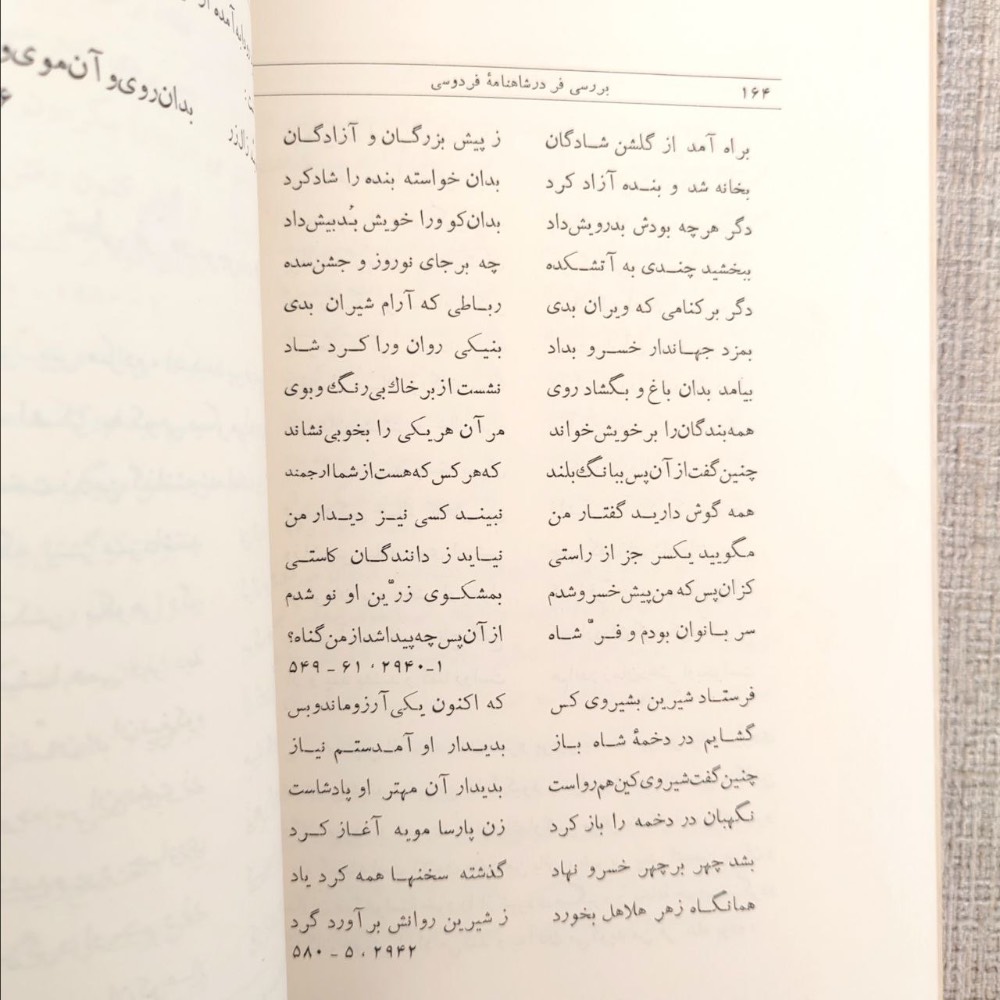 ۱۶۴ بررسی فر در شاهنامهٔ فردوسی
براه آمد از گلشن شادگان ز پیش بزرگان و آزادگان
بخانه شد و بنده آزاد کرد بدان خواسته بنده را شاد کرد
دگر هرچه بودش بدرویش داد بدان کو ورا خویش بُد بیش داد
ببخشید چندی به آتشکده چه بر جای نوروز و جشن سده
دگر بر کنامی که ویران بدی رباطی که آرام شیران بدی
بمزد جهاندار خسرو بداد بنیکی روان ورا کرد شاد
بیامد بدان باغ و بگشاد روی نشست از بر خاك بی رنگ و بوی
همه بندگان را بر خویش خواند مر آن هریکی را بخوبی نشاند
چنین گفت از آن پس ببانگ بلند که هر کس که هست از شما ارجمند
همه گوش دارید گفتار من نبیند کسی نیز دیدار من
مگویید یکسر جز از راستی نیاید ز دانندگان کاستی
کزان پس که من پیش خسرو شدم بمشکوی زرّین او نو شدم
سر بانوان بودم و فرّ شاه از آن پس چه پیدا شد از من گناه؟
۱-۲۹۴۰ ، ۶۱ - ۵۴۹
فرستاد شیرین بشیروی کس که اکنون یکی آرزو ماند و بس
گشایم در دخمهٔ شاه باز بدیدار او آمدستم نیاز
چنین گفت شیروی کین هم رواست بدیدار آن مهتر او پادشاست
نگهبان در دخمه را باز کرد زن پارسا مویه آغاز کرد
بشد چهر بر چهر خسرو نهاد گذشته سخنها همه کرد یاد
همانگاه زهر هلاهل بخورد ز شیرین روانش برآورد گرد
۲۹۴۲ ، ۵ - ۵۸۰
بدان روی و آن موی و